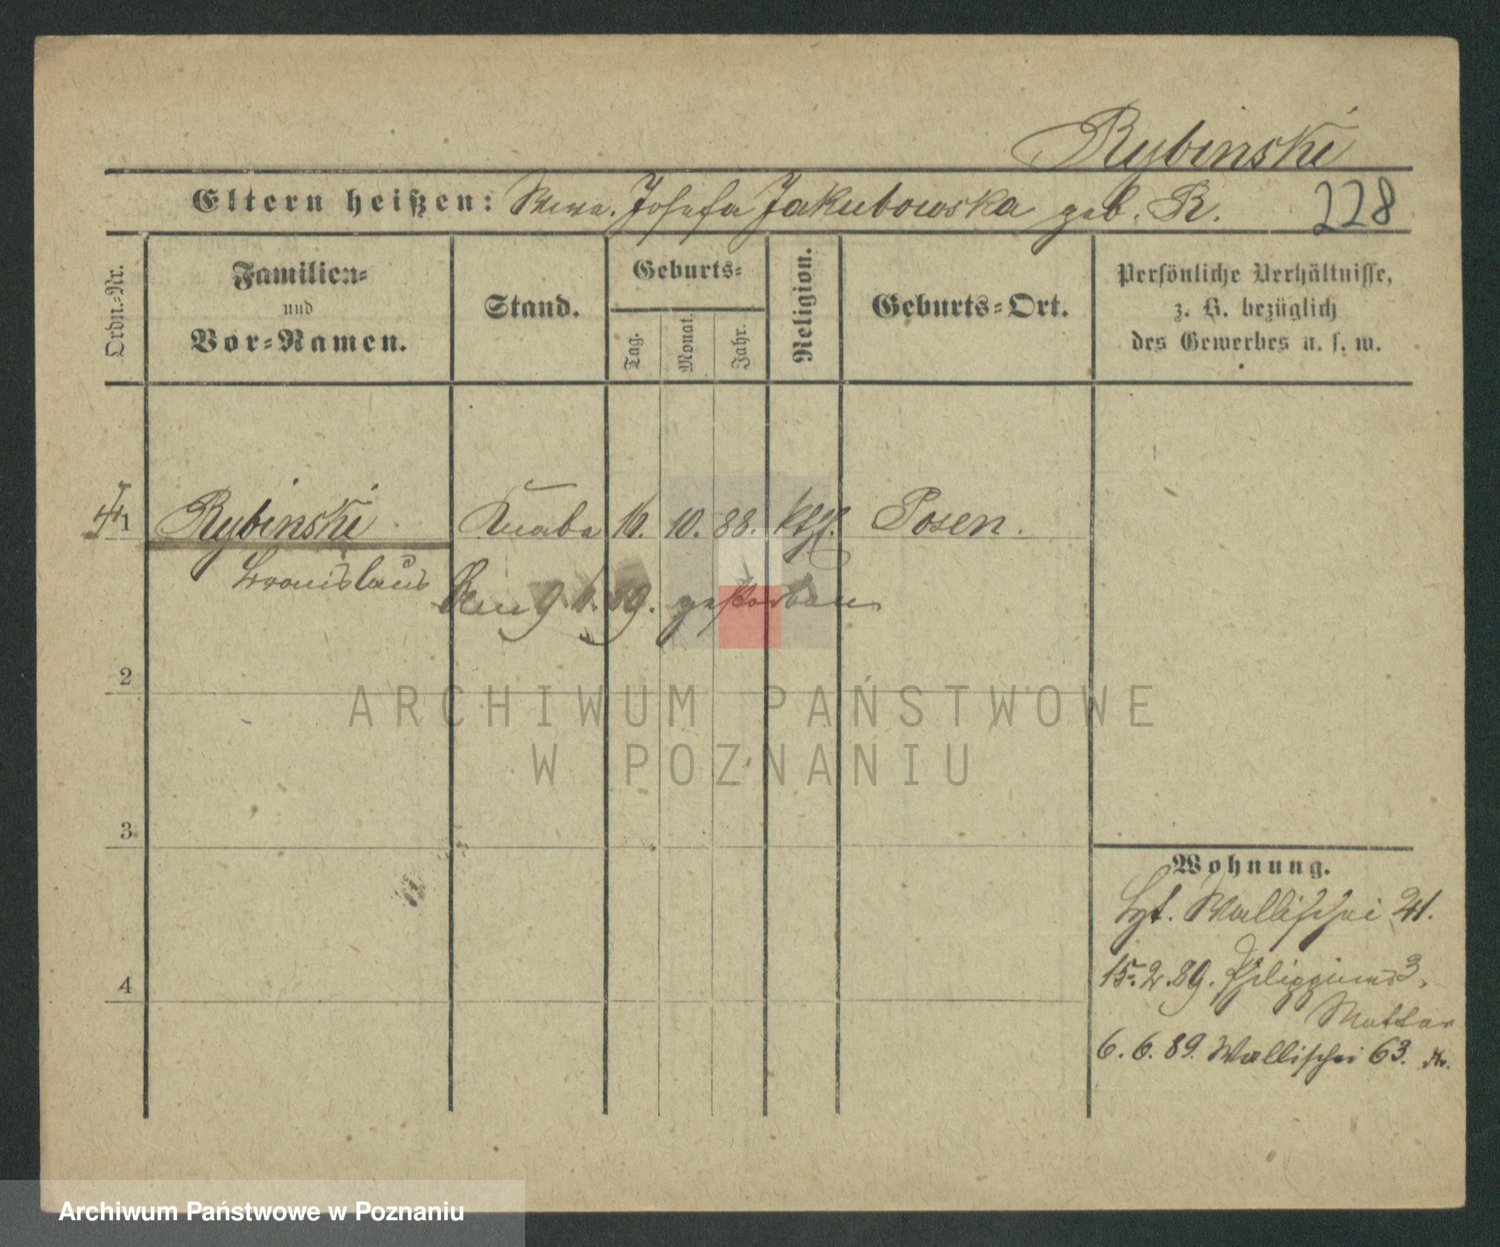 Rybinski
Eltern heißen: Wwe. Josefa Jakubowska geb. R. 228
Ordn.-Nr.
Familien-
und
Vor-Namen.
Stand.
Geburts-
Tag.
Monat.
Jahr.
Religion.
Geburts-Ort.
Persönliche Verhältnisse,
z. B. bezüglich
des Gewerbes u. s. w.
1 Rybinski Knabe 16. 10. 88. kth. Posen.
Bronislaus
Den 9. 89. gestorben
2
ARCHIWUM PAŃSTWOWE
W POZNANIU
3
4
Wohnung.
Wallischei 21.
15.2.89. 3,
Mutter
6. 6. 89. Wallischei 63.
Archiwum Państwowe w Poznaniu